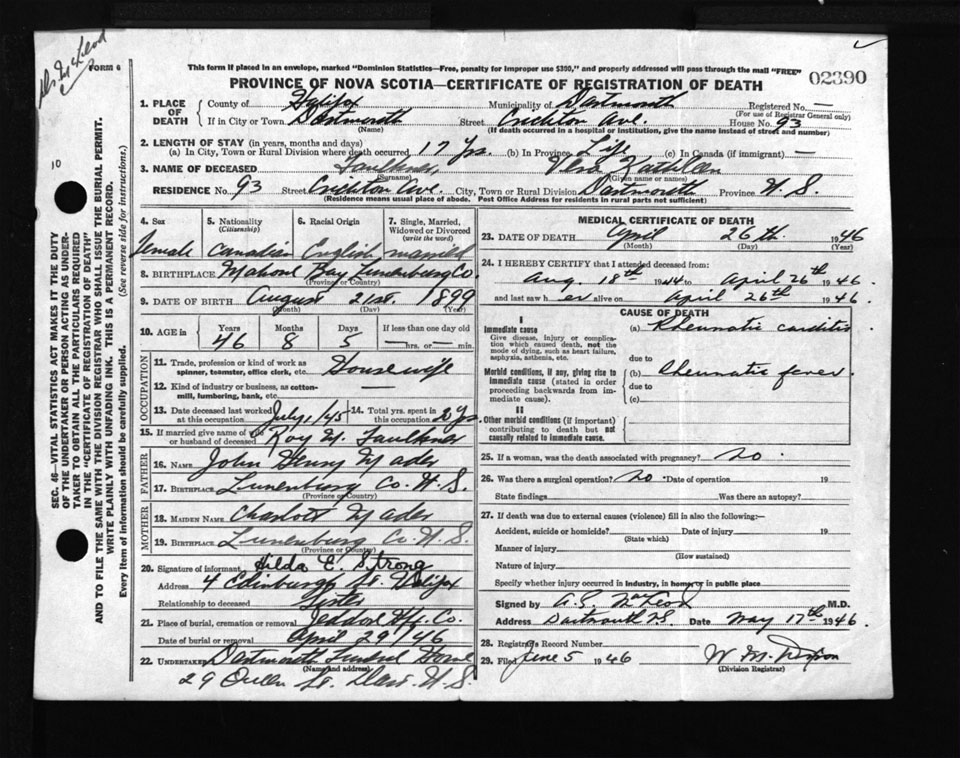 Dr. McLeod
FORM 6
This form if placed in an envelope, marked "Dominion Statistics—Free, penalty for improper use $300," and properly addressed will pass through the mail "FREE"
02390
PROVINCE OF NOVA SCOTIA—CERTIFICATE OF REGISTRATION OF DEATH
1. PLACE OF DEATH
County of Halifax Municipality of Dartmouth Registered No. —
(For use of Registrar General only)
If in City or Town Dartmouth Street Crichton Ave. House No. 93
(Name) (If death occurred in a hospital or institution, give the name instead of street and number)
2. LENGTH OF STAY (in years, months and days)
(a) In City, Town or Rural Division where death occurred 17 Yrs. (b) In Province Life (c) In Canada (if immigrant) —
3. NAME OF DECEASED Faulkner, Kathleen
(Surname) (Given name or names)
RESIDENCE No. 93 Street Crichton Ave. City, Town or Rural Division Dartmouth Province N.S.
(Residence means usual place of abode. Post Office Address for residents in rural parts not sufficient)
4. Sex 5. Nationality (Citizenship) 6. Racial Origin 7. Single, Married, Widowed or Divorced (write the word)
female Canadian English married
8. BIRTHPLACE Mahone Bay Lunenburg Co.
(Province or Country)
9. DATE OF BIRTH August 21st. 1899
(Month) (Day) (Year)
10. AGE in Years Months Days If less than one day old
46 8 5 —hrs. or—min.
OCCUPATION
11. Trade, profession or kind of work as spinner, teamster, office clerk, etc. Housewife
12. Kind of industry or business, as cotton-mill, lumbering, bank, etc. —
13. Date deceased last worked at this occupation July 1/45 14. Total yrs. spent in this occupation 20 Yrs.
15. If married give name of wife or husband of deceased Roy W. Faulkner
FATHER
16. NAME John Henry Mader
17. BIRTHPLACE Lunenburg Co. N.S.
(Province or Country)
MOTHER
18. MAIDEN NAME Charlott Mader
19. BIRTHPLACE Lunenburg Co. N.S.
(Province or Country)
20. Signature of informant Hilda E. Strong
Address 4 Edinburgh St. Halifax
Relationship to deceased Sister
21. Place of burial, cremation or removal Jeddore Hfx. Co.
Date of burial or removal April 29/46
22. UNDERTAKER Dartmouth Funeral Home
(Name and address)
29 Queen St. Dart. N.S.
MEDICAL CERTIFICATE OF DEATH
23. DATE OF DEATH April 26th. 1946
(Month) (Day) (Year)
24. I HEREBY CERTIFY that I attended deceased from
Aug. 18th 1944 to April 26th 1946.
and last saw her alive on April 26th 1946.
CAUSE OF DEATH
I
Immediate cause (a) Rheumatic carditis
Give disease, injury or complication which caused death, not the mode of dying, such as heart failure, asphyxia, asthenia, etc.
due to
Morbid conditions, if any, giving rise to immediate cause (stated in order proceeding backwards from immediate cause).
(b) Rheumatic fever.
due to
(c)
II
Other morbid conditions (if important) contributing to death but not causally related to immediate cause.
25. If a woman, was the death associated with pregnancy? No.
26. Was there a surgical operation? No Date of operation 19
State findings Was there an autopsy?
27. If death was due to external causes (violence) fill in also the following:—
Accident, suicide or homicide? Date of injury 19
(State which)
Manner of injury
(How sustained)
Nature of injury
Specify whether injury occurred in industry, in home, or in public place
Signed by A. G. MacLeod M.D.
Address Dartmouth N.S. Date May 17th 1946.
28. Registrar's Record Number
29. Filed June 5 1946
(Division Registrar)
10
SEC. 46—VITAL STATISTICS ACT MAKES IT THE DUTY
OF THE UNDERTAKER OR PERSON ACTING AS UNDER-
TAKER TO OBTAIN ALL THE PARTICULARS REQUIRED
IN THE "CERTIFICATE OF REGISTRATION OF DEATH"
AND TO FILE THE SAME WITH THE DIVISION REGISTRAR WHO SHALL ISSUE THE BURIAL PERMIT.
WRITE PLAINLY WITH UNFADING INK. THIS IS A PERMANENT RECORD.
Every item of information should be carefully supplied. (See reverse side for instructions.)